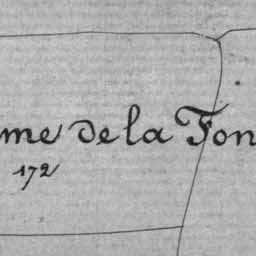 me de la Fon
172